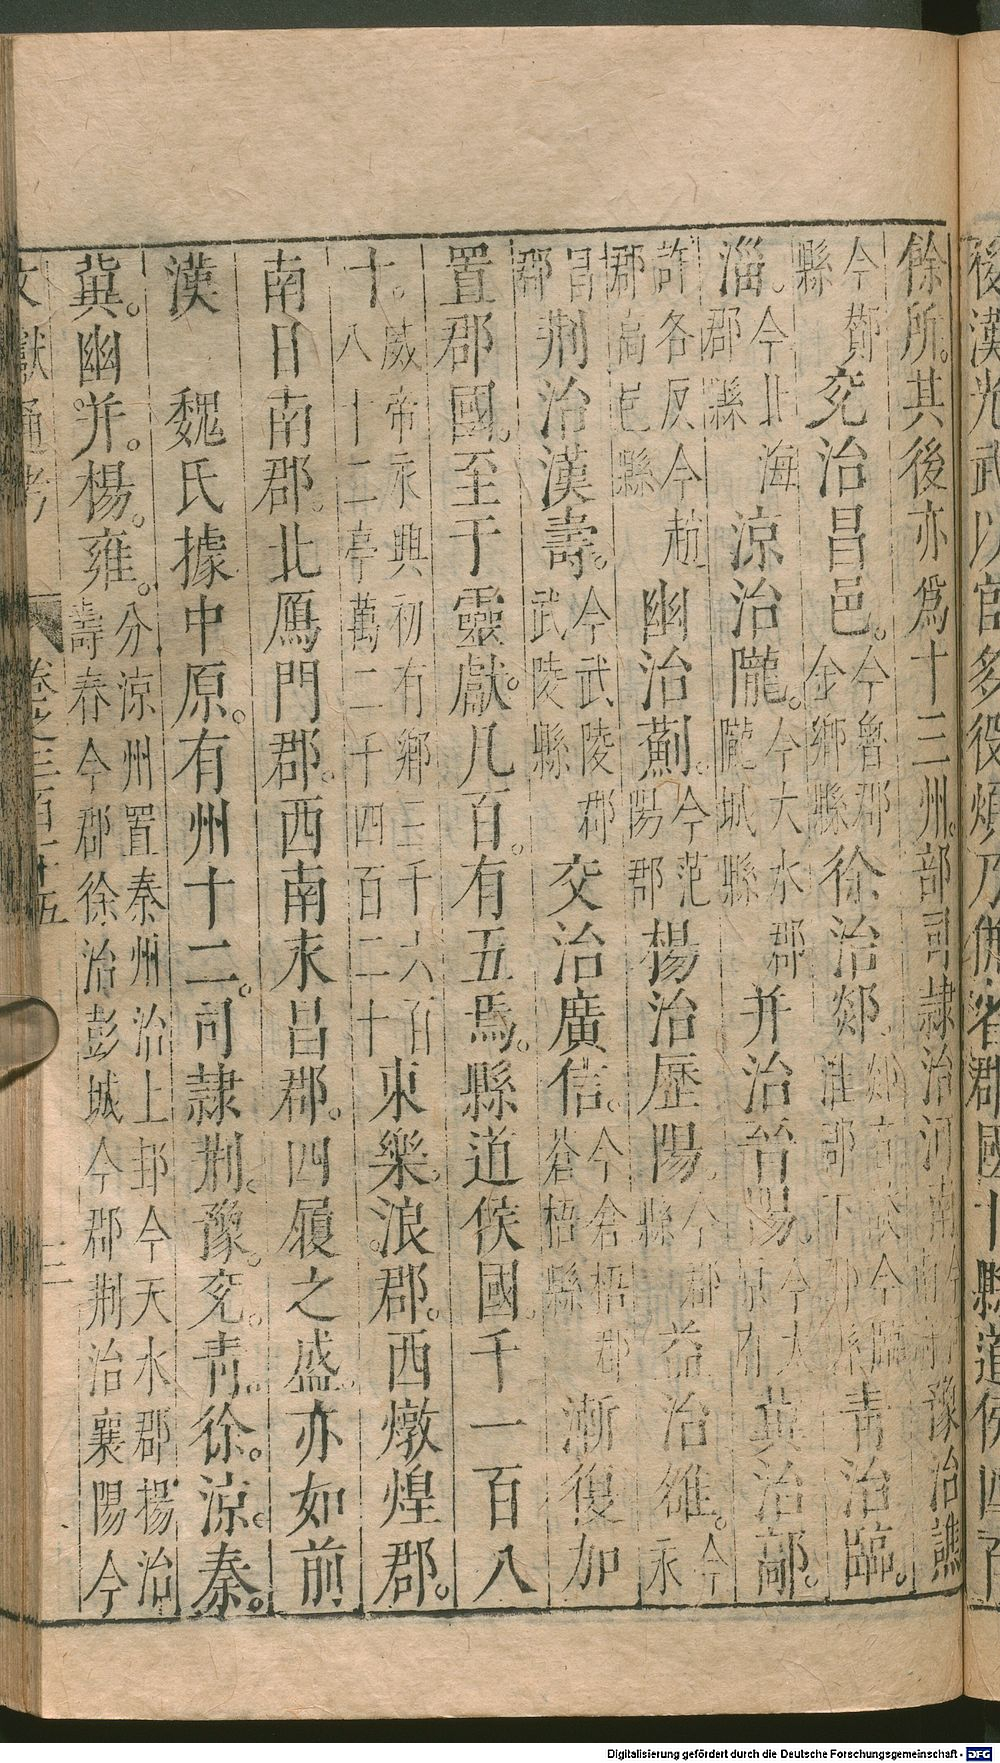 後漢光武以官多役煩乃併省郡國十縣道侯四百
餘所。其後亦爲十三州。部司隸治河南今河南府豫治譙
今酇縣 兗治昌邑。今魯郡金鄉縣 徐治郯。今臨淮郡下邳縣 青治臨
淄。今北海郡縣 涼治隴。今天水郡隴城縣 并治晉陽。今太原府 冀治鄗。
許各反今趙郡高邑縣 幽治薊。今范陽郡 楊治歷陽。今郡縣 益治雒。今
昌郡 荆治漢壽。今武陵郡武陵縣 交治廣信。今蒼梧郡蒼梧縣 漸復加
置郡國。至于靈獻。凡百。有五焉。縣道侯國千一百八
十。威帝永興初有鄉三千六百八十二亭萬二千四百二十 東樂浪郡。西燉煌郡。
南日南郡。北鴈門郡。西南永昌郡。四履之盛。亦如前
漢 魏氏據中原。有州十二。司隸荆。豫。兗。靑。徐。涼。秦。
冀。幽。并。楊。雍。分涼州置秦州治上邽今天水郡楊治壽春今郡徐治彭城今郡荆治襄陽今
文獻通考 卷之三百十五 二
Digitalisierung gefördert durch die Deutsche Forschungsgemeinschaft - DFG